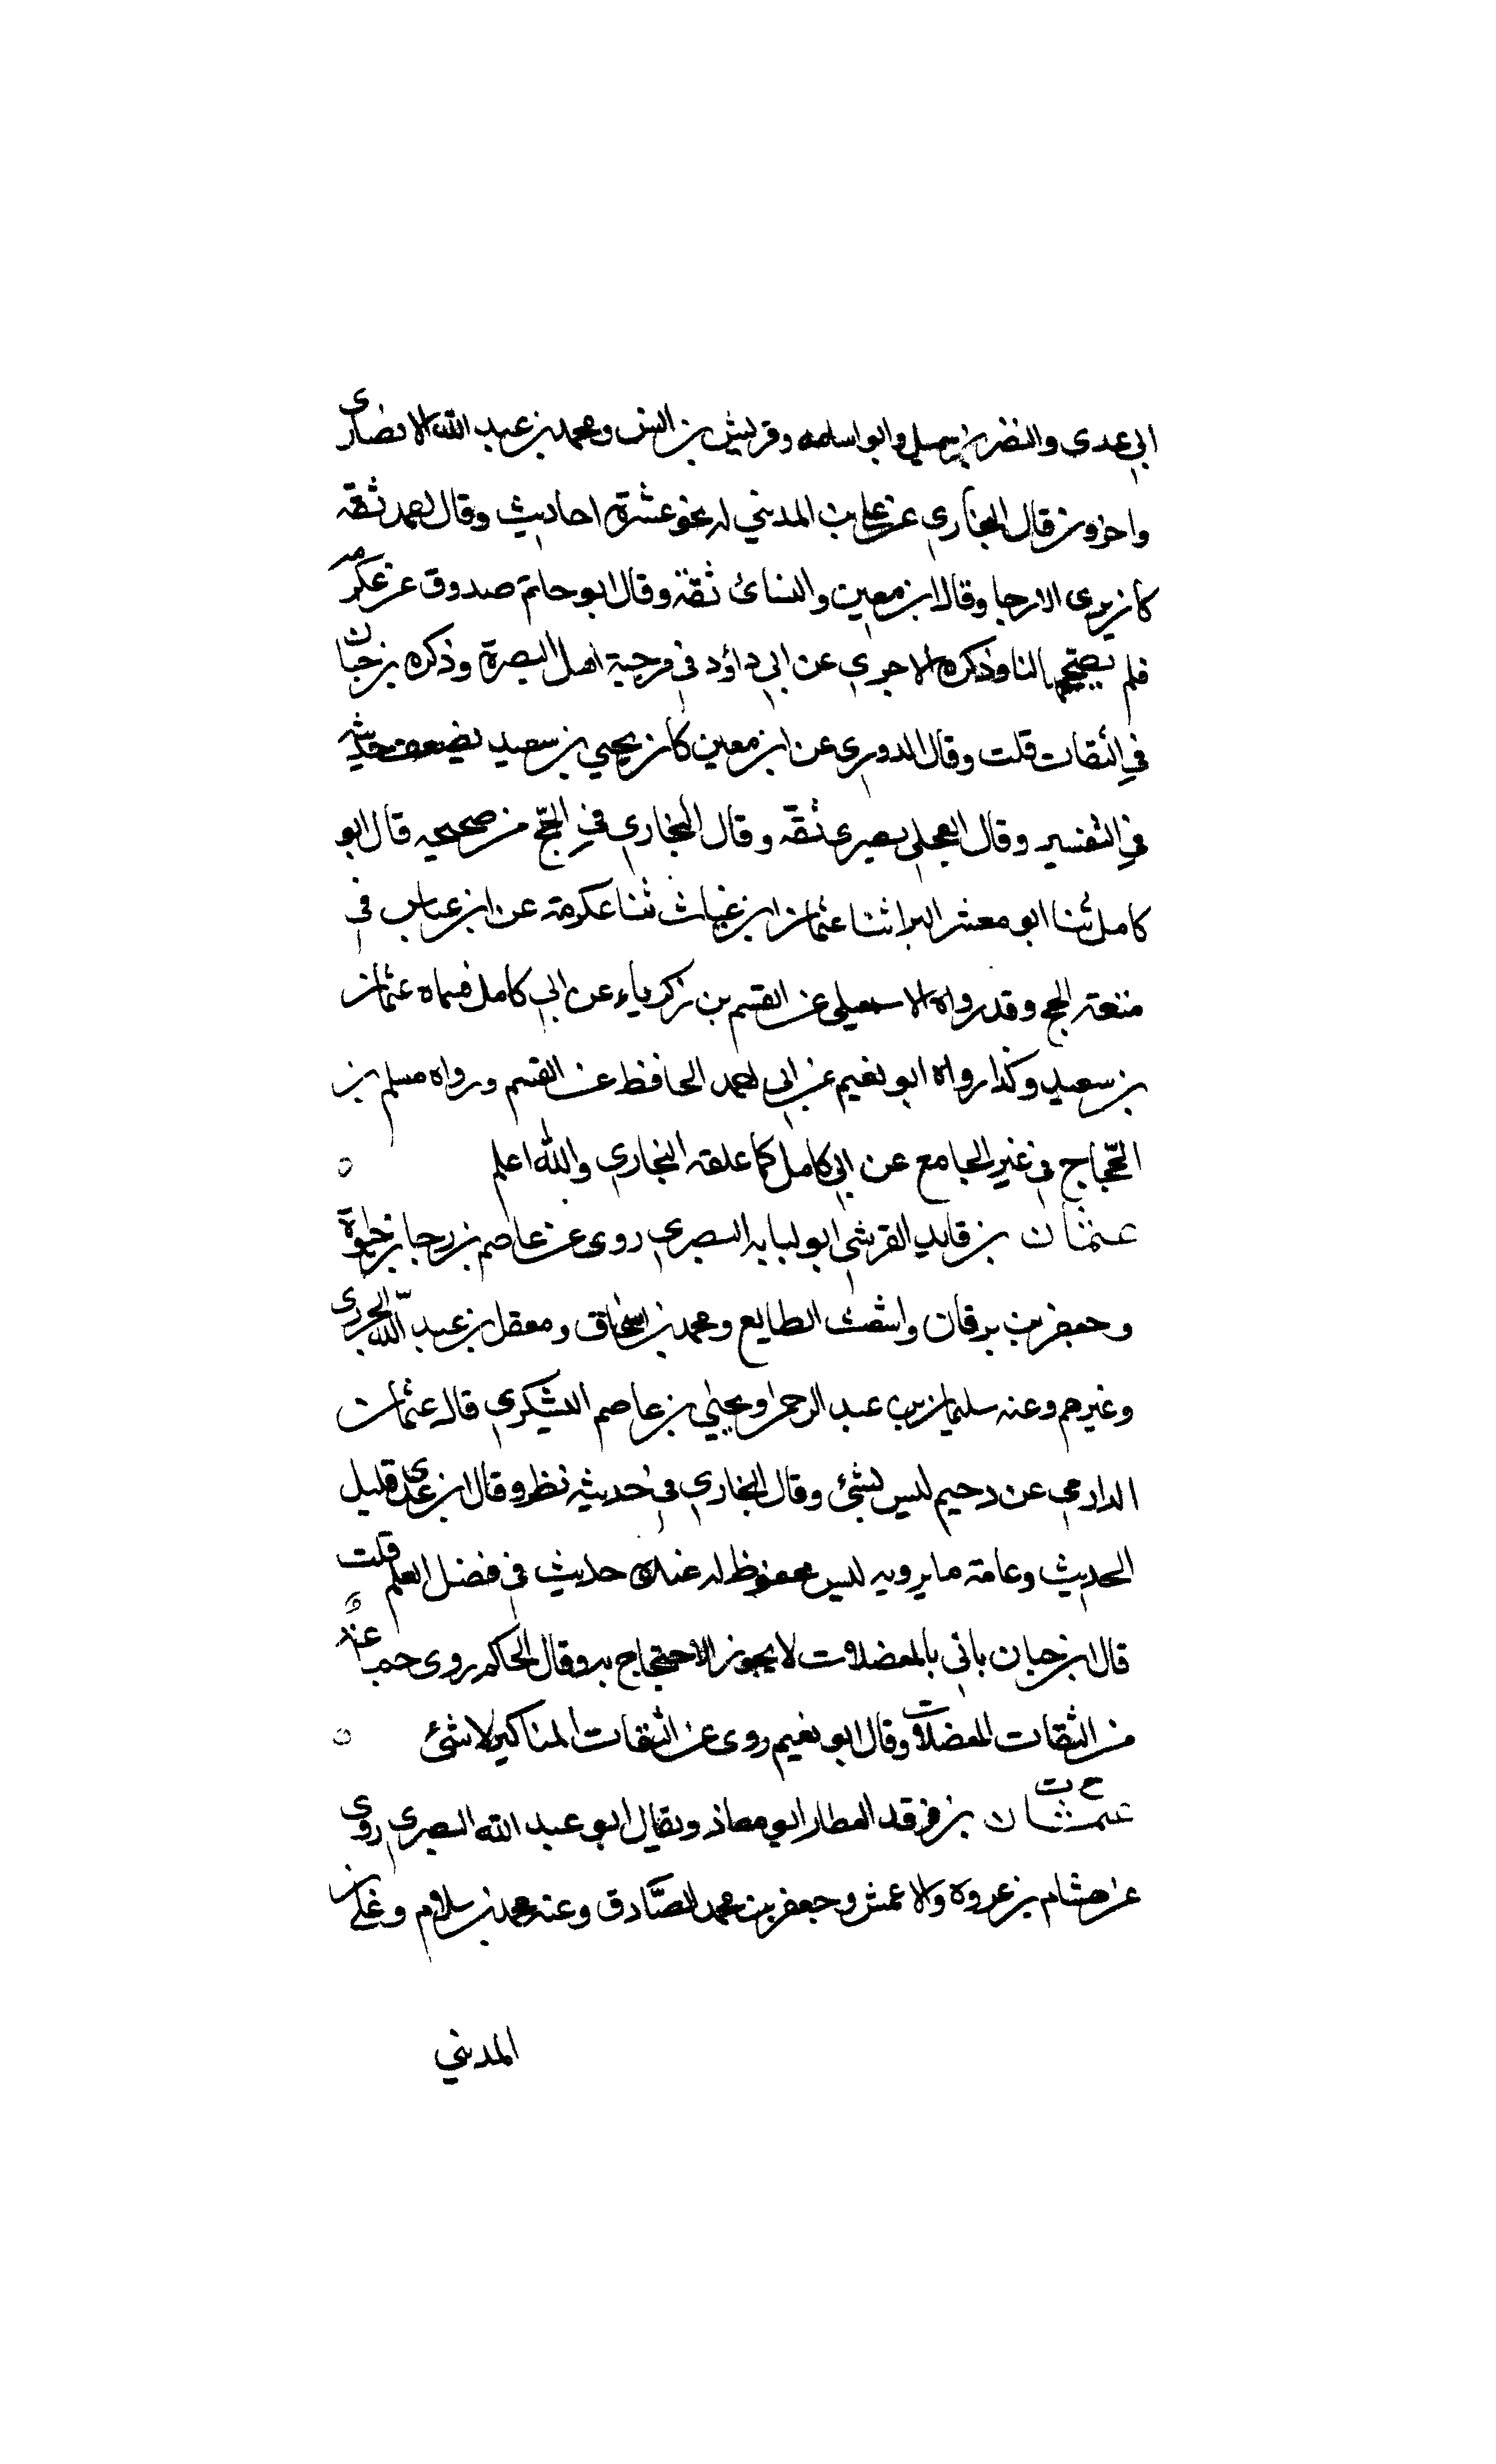 ابى عدى والنضر بن شميل وابو اسامه وقريش بن انس ومحمد بن عبد الله الانصارى
واخرون قال البخاري عن علي بن المديني له نحو عشرة احاديث وقال احمد ثقه
كان يرى الارجا وقال ابن معين والنسائ ثقة وقال ابو حاتم صدوق عن عكرمه
فلم يصححها لنا وذكره الاجري عن ابي داؤد في مرجية اهل البصرة وذكره بن حبان
في الثقات قلت وقال الدوري عن ابن معين كان يحيي بن سعيد يضعف حديثه
في التفسير وقال العجلي بصرى ثقه وقال البخاري في الحجّ من صحيحه قال ابو
كامل ثنا ابو معشر البرا ثنا عثمان ابن غياث ثنا عكرمة عن ابن عباس في
متعة الحج وقد رواه الاسمعيلى عن القسم بن زكرياء عن ابي كامل فسماه عثمان
بن سعيد وكذا رواه ابو نعيم عن ابي احمد الحافظ عن القسم ورواه مسلم بن
الحّجاج في غير الجامع عن ابي كامل كما علقه البخاري والله اعلم ه
عثمان بن فايد القرشي ابو لبابه البصري روى عن عاصم بن رجا بن حيوة
وجعفر بن برقان واشعث الطايع ومحمد بن اسحاق ومعقل بن عبيد الله الجزرى
وغيرهم وعنه سليمان بن عبد الرحمن ويحيٰي بن عاصم اليشكري قال عثمان
الدارمي عن دحيم ليس بشئ وقال البخاري في حديثه نظر وقال ابن عدى قليل
الحديث وعامة ما يرويه ليس بمحفوظ له عنده حديث في فضل العلم قلت
قال ابن حبان ياتي بالمعضلات لا يجوز الاحتجاج به وقال الحاكم روى عن جماعة
من الثقات المعضلات وقال ابو نعيم روى عن الثقات المناكير لا شئ ه
عثمان بن فرقد العطار ابو معاذ ويقال ابو عبد الله البصري روى
خ ت
عن هشام بن عروة والاعمش وجعفر بن محمد الصَّادق وعنه محمد بن سلام وعلي بن
المديني